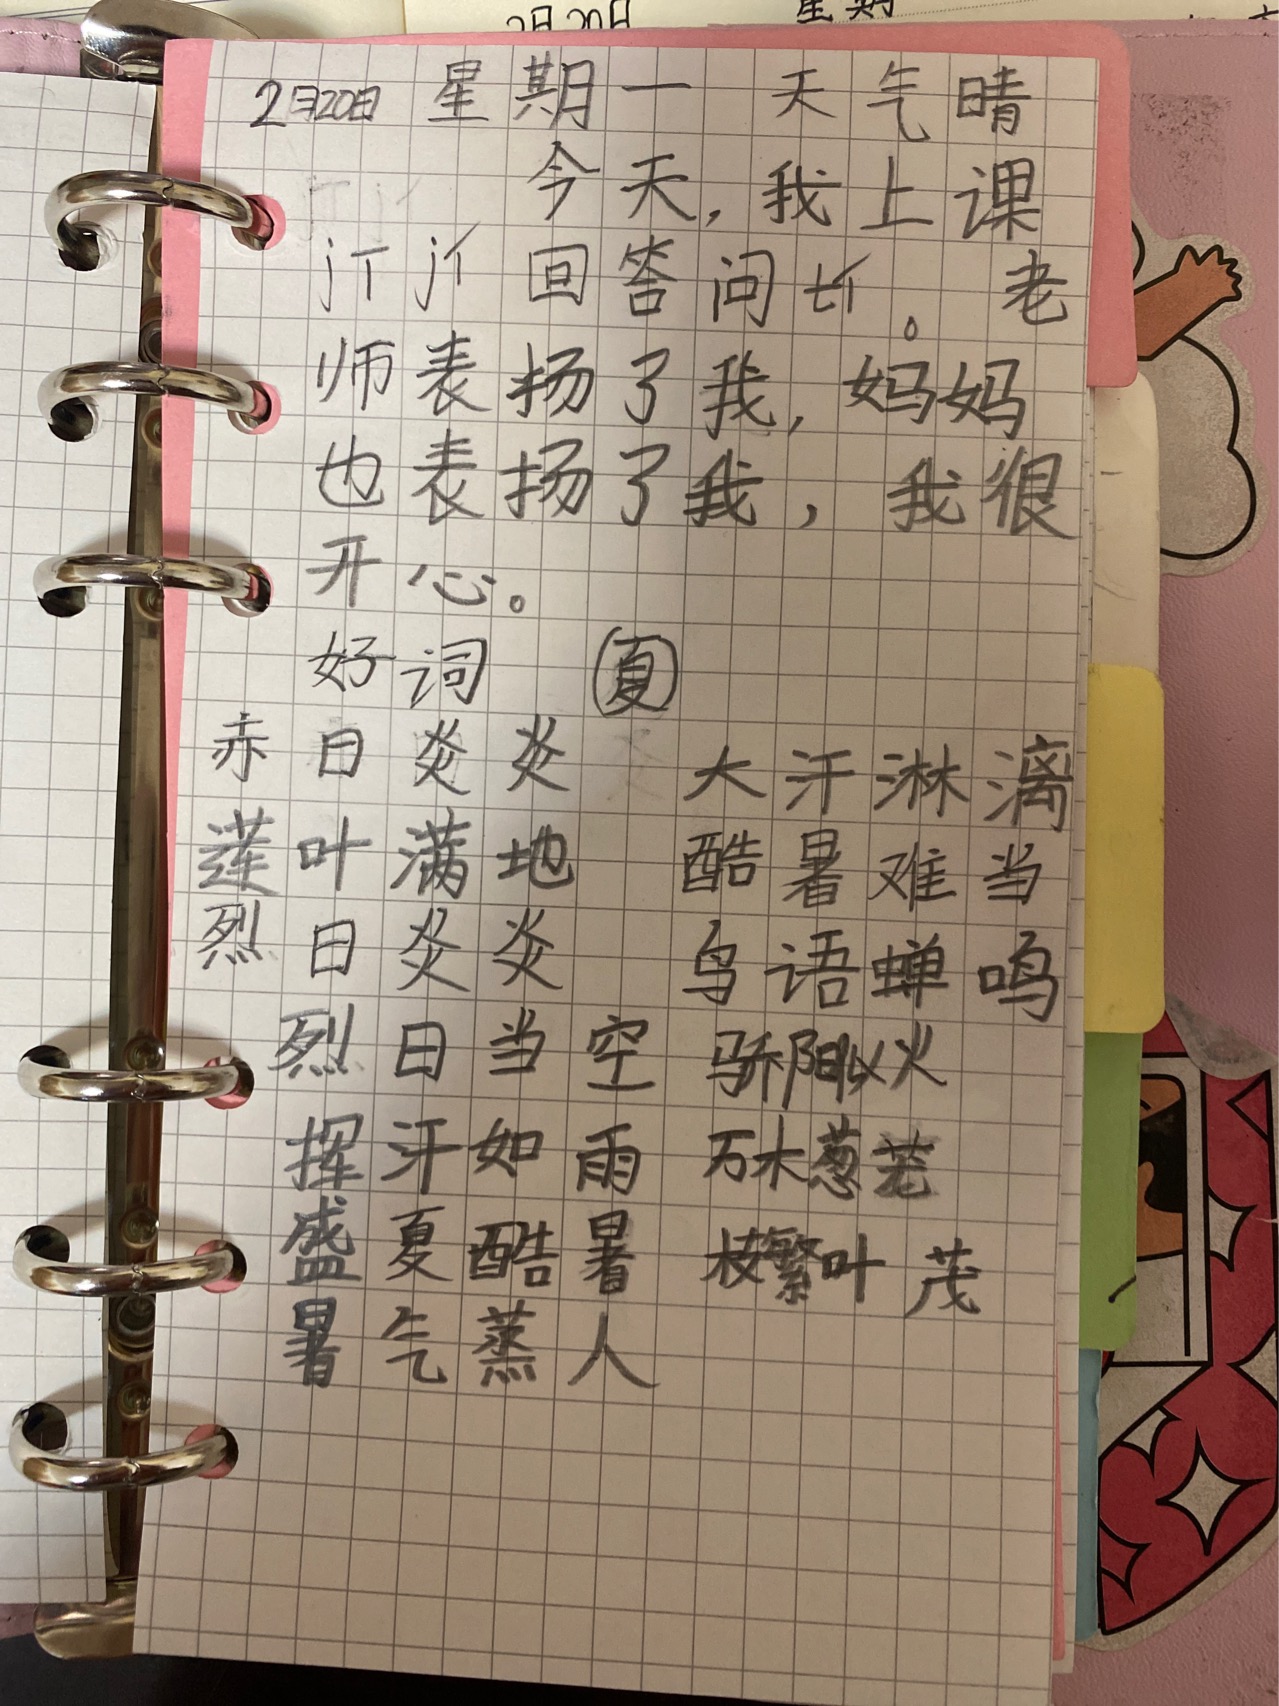 2月20日 星期
2月20日 星期一 天气晴
今天,我上课
jī jí 回答问tí。老
师表扬了我,妈妈
也表扬了我,我很
开心。
好词 夏
赤日炎炎 大汗淋漓
莲叶满地 酷暑难当
烈日炎炎 鸟语蝉鸣
烈日当空 骄阳似火
挥汗如雨 万木葱茏
盛夏酷暑 枝繁叶茂
暑气蒸人